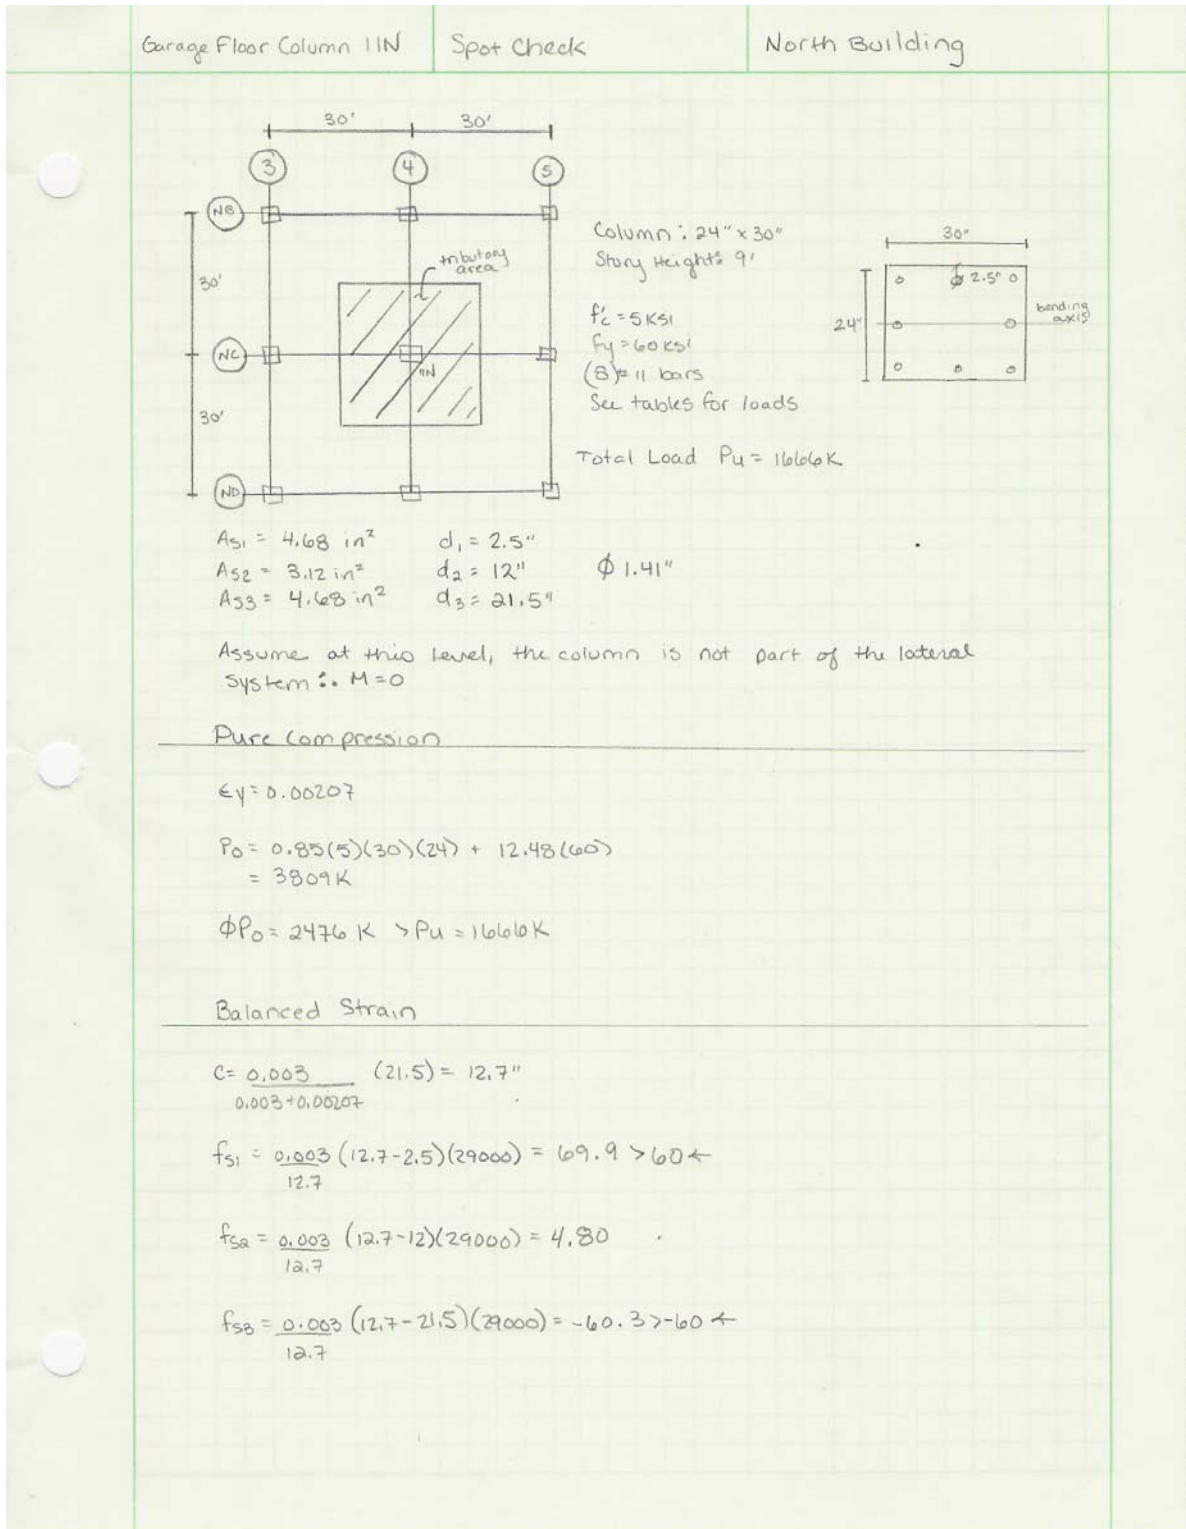 Garage Floor Column 11N
Spot Check
North Building
30'
30'
3
4
5
NB
30'
NC
30'
ND
tributary
area
11N
Column: 24" x 30"
Story Height: 9'
f'c = 5 KSI
Fy = 60 ksi
(8) # 11 bars
See tables for loads
Total Load Pu = 1666K
30"
24"
2.5"
bending
axis
As1 = 4.68 in² d1 = 2.5"
As2 = 3.12 in² d2 = 12" ϕ 1.41"
As3 = 4.68 in² d3 = 21.5"
Assume at this level, the column is not part of the lateral
system ∴ M=0
Pure Compression
εy = 0.00207
Po = 0.85(5)(30)(24) + 12.48(60)
= 3809K
ϕPo = 2476 K > Pu = 1666K
Balanced Strain
C = 0.003 (21.5) = 12.7"
0.003+0.00207
fs1 = 0.003 (12.7-2.5)(29000) = 69.9 > 60 ←
12.7
fs2 = 0.003 (12.7-12)(29000) = 4.80
12.7
fs3 = 0.003 (12.7-21.5)(29000) = -60.3 > -60 ←
12.7